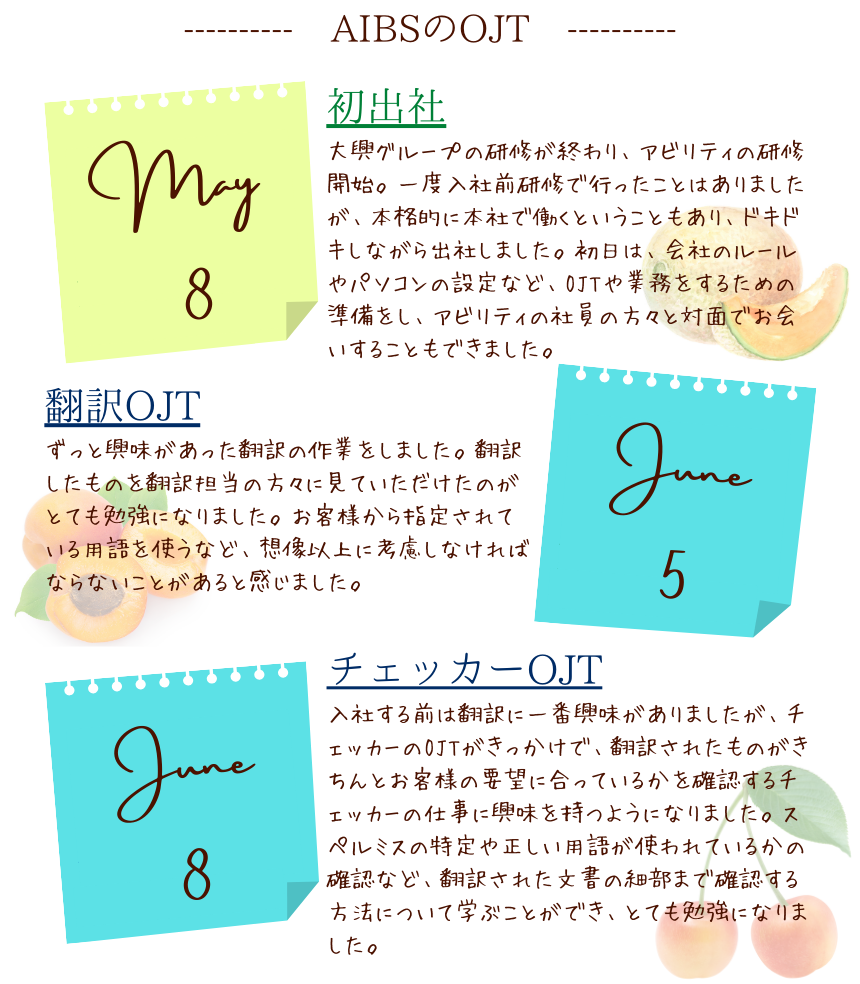 ---------- AIBSのOJT ----------
May
8
初出社
大興グループの研修が終わり、アビリティの研修
開始。一度入社前研修で行ったことはありました
が、本格的に本社で働くということもあり、ドキド
キしながら出社しました。初日は、会社のルール
やパソコンの設定など、OJTや業務をするための
準備をし、アビリティの社員の方々と対面でお会
いすることもできました。
翻訳OJT
ずっと興味があった翻訳の作業をしました。翻訳
したものを翻訳担当の方々に見ていただけたのが
とても勉強になりました。お客様から指定されて
いる用語を使うなど、想像以上に考慮しなければ
ならないことがあると感じました。
June
5
June
8
チェッカーOJT
入社する前は翻訳に一番興味がありましたが、チ
ェッカーのOJTがきっかけで、翻訳されたものがき
ちんとお客様の要望に合っているかを確認するチ
ェッカーの仕事に興味を持つようになりました。ス
ペルミスの特定や正しい用語が使われているかの
確認など、翻訳された文書の細部まで確認する
方法について学ぶことができ、とても勉強になりま
した。